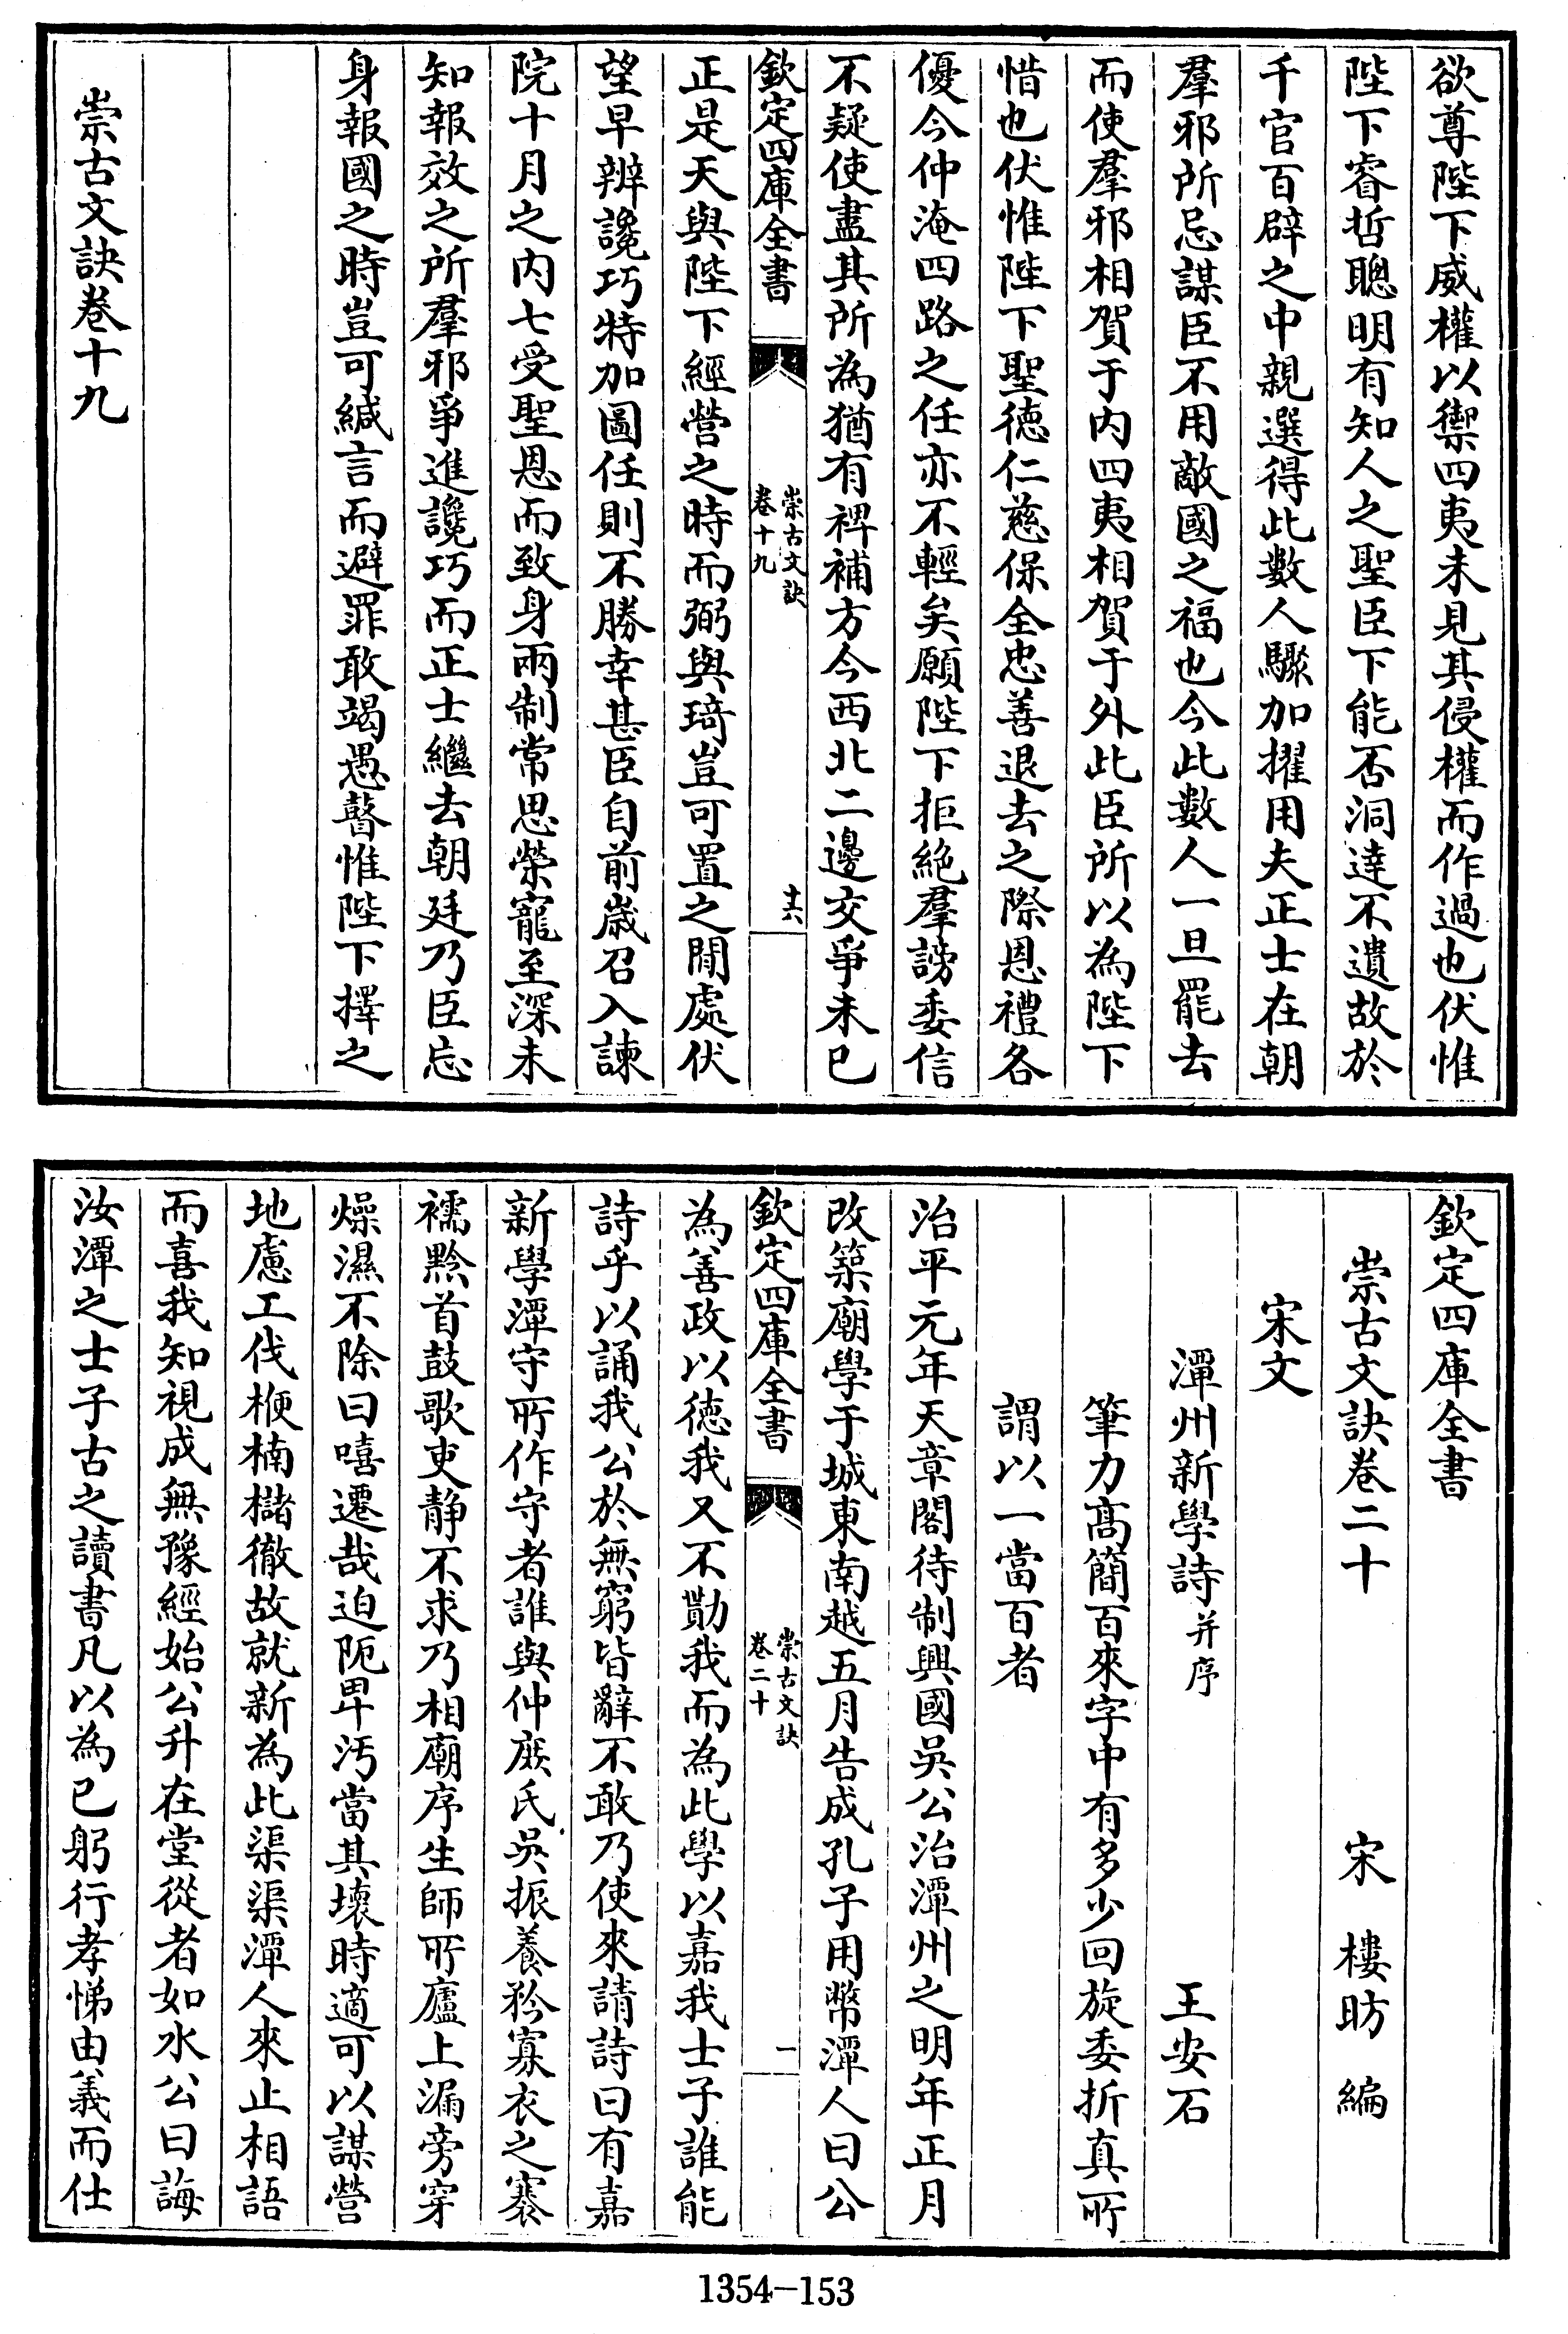 欲尊陛下威權以禦四夷未見其侵權而作過也伏惟
陛下睿哲聰明有知人之聖臣下能否洞達不遺故於
千官百辟之中親選得此數人驟加擢用夫正士在朝
羣邪所忌謀臣不用敵國之福也今此數人一旦罷去
而使羣邪相賀于内四夷相賀于外此臣所以為陛下
惜也伏惟陛下聖德仁慈保全忠善退去之際恩禮各
優今仲淹四路之任亦不輕矣願陛下拒絶羣謗委信
不疑使盡其所為猶有裨補方今西北二邊交爭未已
欽定四庫全書
崇古文訣
卷十九
十六
正是天與陛下經營之時而弼與琦豈可置之閒處伏
望早辨讒巧特加圖任則不勝幸甚臣自前歲召入諫
院十月之内七受聖恩而致身兩制常思榮寵至深未
知報效之所羣邪爭進讒巧而正士繼去朝廷乃臣忘
身報國之時豈可緘言而避罪敢竭愚瞽惟陛下擇之
崇古文訣卷十九
欽定四庫全書
崇古文訣卷二十
宋 樓昉 編
宋文
潭州新學詩并序
王安石
筆力高簡百來字中有多少回旋委折真所
謂以一當百者
治平元年天章閣待制興國吳公治潭州之明年正月
改築廟學于城東南越五月告成孔子用幣潭人曰公
欽定四庫全書
崇古文訣
卷二十
一
為善政以德我又不勩我而為此學以嘉我士子誰能
詩乎以誦我公於無窮皆辭不敢乃使來請詩曰有嘉
新學潭守所作守者誰與仲庶氏吳振養矜寡衣之褰
襦黔首鼓歌吏靜不求乃相廟序生師所廬上漏旁穿
燥濕不除曰嘻遷哉迫阨卑汚當其壞時適可以謀營
地慮工伐楩楠櫧徹故就新為此渠渠潭人來止相語
而喜我知視成無豫經始公升在堂從者如水公曰誨
汝潭之士子古之讀書凡以為已躬行孝悌由義而仕
1354-153